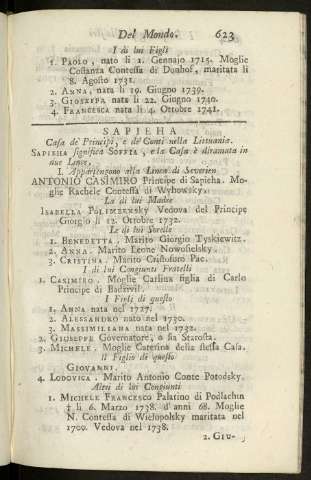 Del Mondo. 623
I di lui Figli
1. PAOLO, nato li 1. Gennajo 1715. Moglie
Costanza Contessa di Donhof, maritata li
8. Agosto 1731.
2. ANNA, nata li 19. Giugno 1739.
3. GIOSEFFA nata li 22. Giugno 1740.
4. FRANCESCA nata li 4. Ottobre 1741.
SAPIEHA
Casa de' Principi, e de' Conti nella Lituania.
SAPIEHA significa SOFFIA, e la Casa è diramata in
due Linee.
I. Appartengono alla Linea di Severien
ANTONIO CASIMIRO Principe di Sapieha. Mo-
glie Rachele Contessa di Wyhowsky.
La di lui Madre
ISABELLA POLIMBENSKY Vedova del Principe
Giorgio li 12. Ottobre 1732.
Le di lui Sorelle
1. BENEDETTA. Marito Giorgio Tyskiewitz.
2. ANNA. Marito Leone Nowodelsky.
3. CRISTINA. Marito Cristoforo Pac.
I di lui Congiunti Fratelli
1. CASIMIRO. Moglie Carlina figlia di Carlo
Principe di Radzivil.
I Figli di questo
1. ANNA nata nel 1727.
2. ALESSANDRO nato nel 1730.
3. MASSIMILIANA nata nel 1732.
2. GIUSEPPE Governatore, o sia Starosta.
3. MICHELE. Moglie Caterina della stessa Casa.
Il Figlio di questo
GIOVANNI.
4. LODOVICA. Marito Antonio Conte Potodsky.
Altri di lui Congiunti
1. MICHELE FRANCESCO Palatino di Podlachin
† li 6. Marzo 1738. d'anni 68. Moglie
N. Contessa di Wielopolsky maritata nel
1700. Vedova nel 1738.
2. Giu-